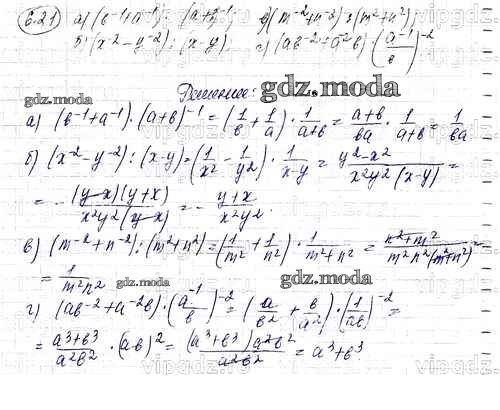 6.21) а) (b⁻¹+a⁻¹) · (a+b)⁻¹; в) (m⁻²+n⁻²) : (m²+n²);
б) (x⁻²−y⁻²) : (x−y); г) (ab⁻²+a⁻²b) · (a⁻¹/b)⁻²
Решение:
gdz.moda
gdz.moda
а) (b⁻¹+a⁻¹) · (a+b)⁻¹ = (1/b + 1/a) · 1/(a+b) = (a+b)/ba · 1/(a+b) = 1/ba
б) (x⁻²−y⁻²) : (x−y) = (1/x² − 1/y²) · 1/(x−y) = (y²−x²)/(x²y²(x−y)) =
= − ((y−x)(y+x))/(x²y²(y−x)) = − (y+x)/(x²y²).
gdz.moda
в) (m⁻²+n⁻²) : (m²+n²) = (1/m² + 1/n²) · 1/(m²+n²) = (n²+m²)/(m²n²(m²+n²)) =
= 1/(m²n²)
gdz.moda
gdz.moda
г) (ab⁻²+a⁻²b) · (a⁻¹/b)⁻² = (a/b² + b/a²) · (1/ab)⁻² =
= (a³+b³)/(a²b²) · (ab)² = ((a³+b³)a²b²)/(a²b²) = a³+b³